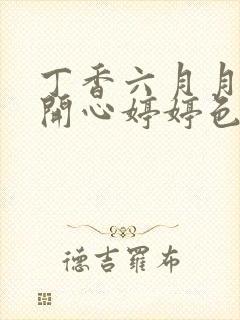 丁香六月月
開心婷婷色
德吉羅布